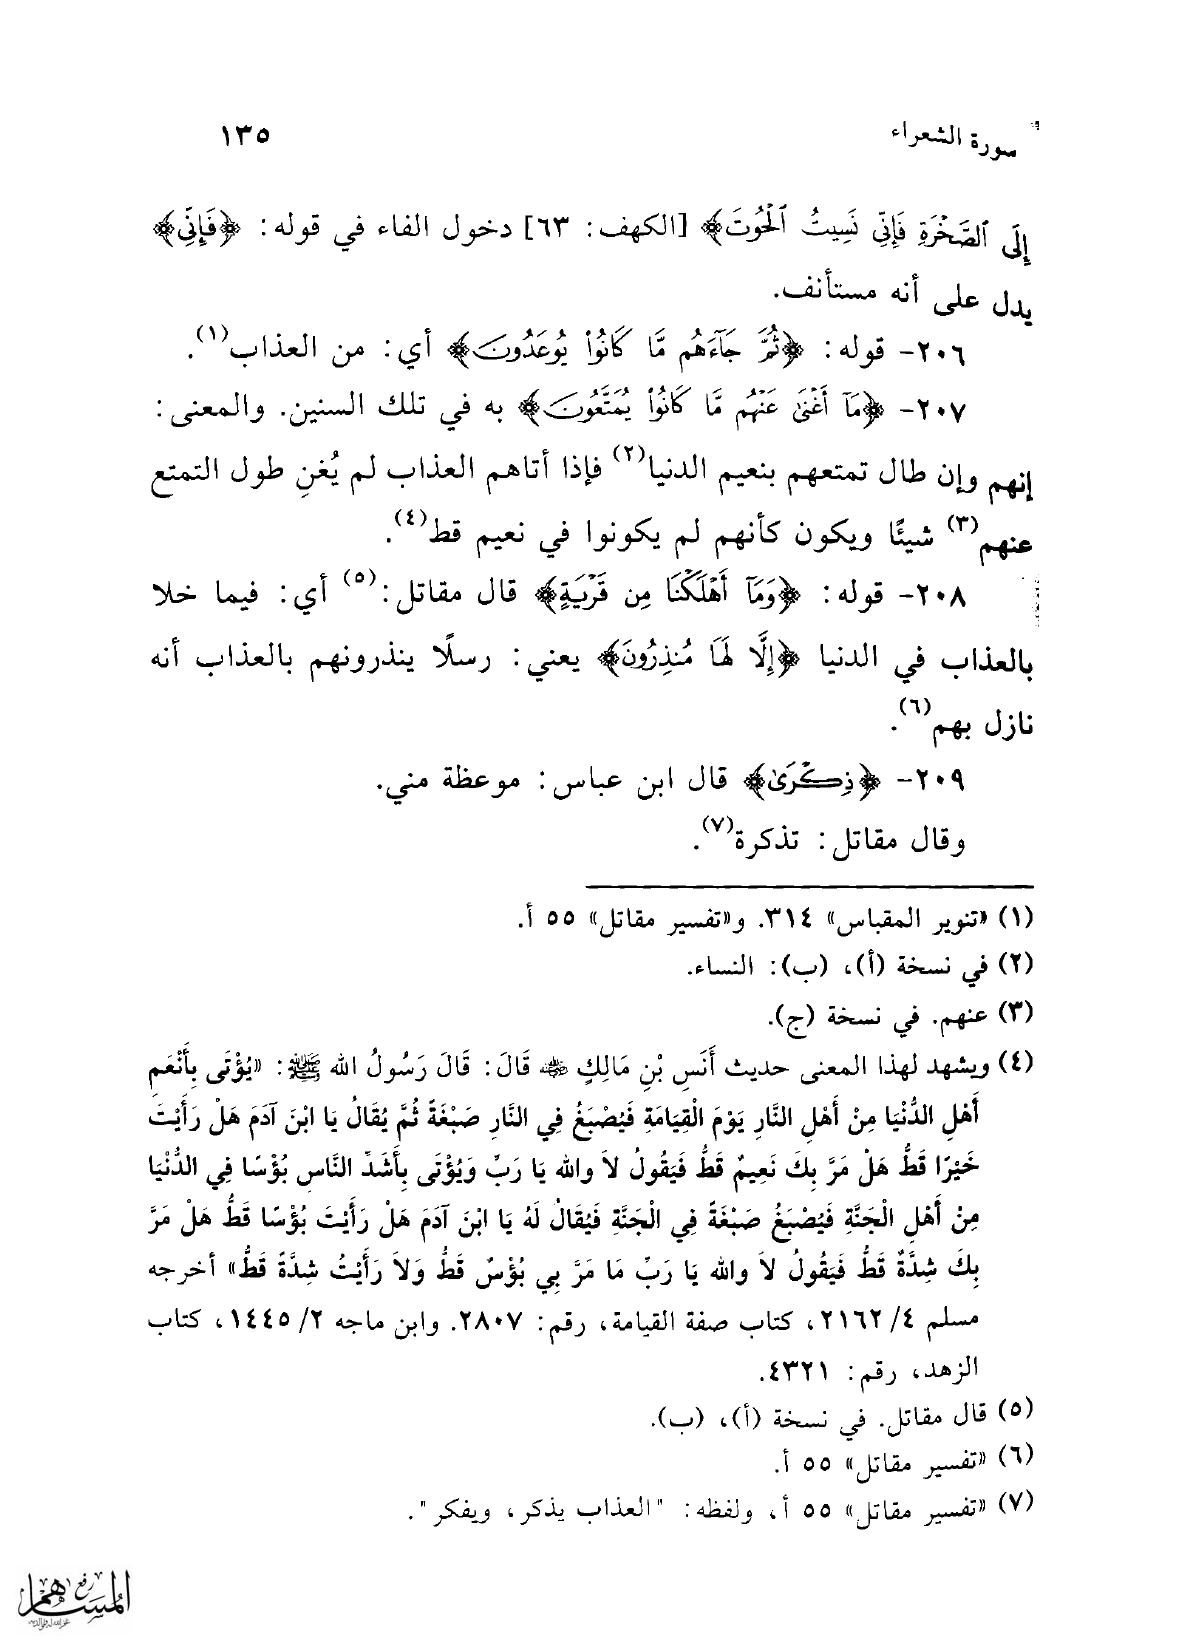 سورة الشعراء ١٣٥
إِلَى ٱلصَّخْرَةِ فَإِنِّى نَسِيتُ ٱلْحُوتَ﴾ [الكهف: ٦٣] دخول الفاء في قوله: ﴿فَإِنِّى﴾
يدل على أنه مستأنف.
٢٠٦- قوله: ﴿ثُمَّ جَآءَهُم مَّا كَانُوا۟ يُوعَدُونَ﴾ أي: من العذاب(١).
٢٠٧- ﴿مَآ أَغْنَىٰ عَنْهُم مَّا كَانُوا۟ يُمَتَّعُونَ﴾ به في تلك السنين. والمعنى:
إنهم وإن طال تمتعهم بنعيم الدنيا(٢) فإذا أتاهم العذاب لم يُغنِ طول التمتع
عنهم(٣) شيئًا ويكون كأنهم لم يكونوا في نعيم قط(٤).
٢٠٨- قوله: ﴿وَمَآ أَهْلَكْنَا مِن قَرْيَةٍ﴾ قال مقاتل:(٥) أي: فيما خلا
بالعذاب في الدنيا ﴿إِلَّا لَهَا مُنذِرُونَ﴾ يعني: رسلًا ينذرونهم بالعذاب أنه
نازل بهم(٦).
٢٠٩- ﴿ذِكْرَىٰ﴾ قال ابن عباس: موعظة مني.
وقال مقاتل: تذكرة(٧).
(١) «تنوير المقباس» ٣١٤. و«تفسير مقاتل» ٥٥ أ.
(٢) في نسخة (أ)، (ب): النساء.
(٣) عنهم. في نسخة (ج).
(٤) ويشهد لهذا المعنى حديث أَنَسِ بْنِ مَالِكٍ ﵁ قَالَ: قَالَ رَسُولُ الله ﷺ: «يُؤْتَى بِأَنْعَمِ
أَهْلِ الدُّنْيَا مِنْ أَهْلِ النَّارِ يَوْمَ الْقِيَامَةِ فَيُصْبَغُ فِي النَّارِ صَبْغَةً ثُمَّ يُقَالُ يَا ابْنَ آدَمَ هَلْ رَأَيْتَ
خَيْرًا قَطُّ هَلْ مَرَّ بِكَ نَعِيمٌ قَطُّ فَيَقُولُ لاَ والله يَا رَبِّ وَيُؤْتَى بِأَشَدِّ النَّاسِ بُؤْسًا فِي الدُّنْيَا
مِنْ أَهْلِ الْجَنَّةِ فَيُصْبَغُ صَبْغَةً فِي الْجَنَّةِ فَيُقَالُ لَهُ يَا ابْنَ آدَمَ هَلْ رَأَيْتَ بُؤْسًا قَطُّ هَلْ مَرَّ
بِكَ شِدَّةٌ قَطُّ فَيَقُولُ لاَ والله يَا رَبِّ مَا مَرَّ بِي بُؤْسٌ قَطُّ وَلاَ رَأَيْتُ شِدَّةً قَطُّ» أخرجه
مسلم ٤/ ٢١٦٢، كتاب صفة القيامة، رقم: ٢٨٠٧. وابن ماجه ٢/ ١٤٤٥، كتاب
الزهد، رقم: ٤٣٢١.
(٥) قال مقاتل. في نسخة (أ)، (ب).
(٦) «تفسير مقاتل» ٥٥ أ.
(٧) «تفسير مقاتل» ٥٥ أ، ولفظه: "العذاب يذكر، ويفكر".